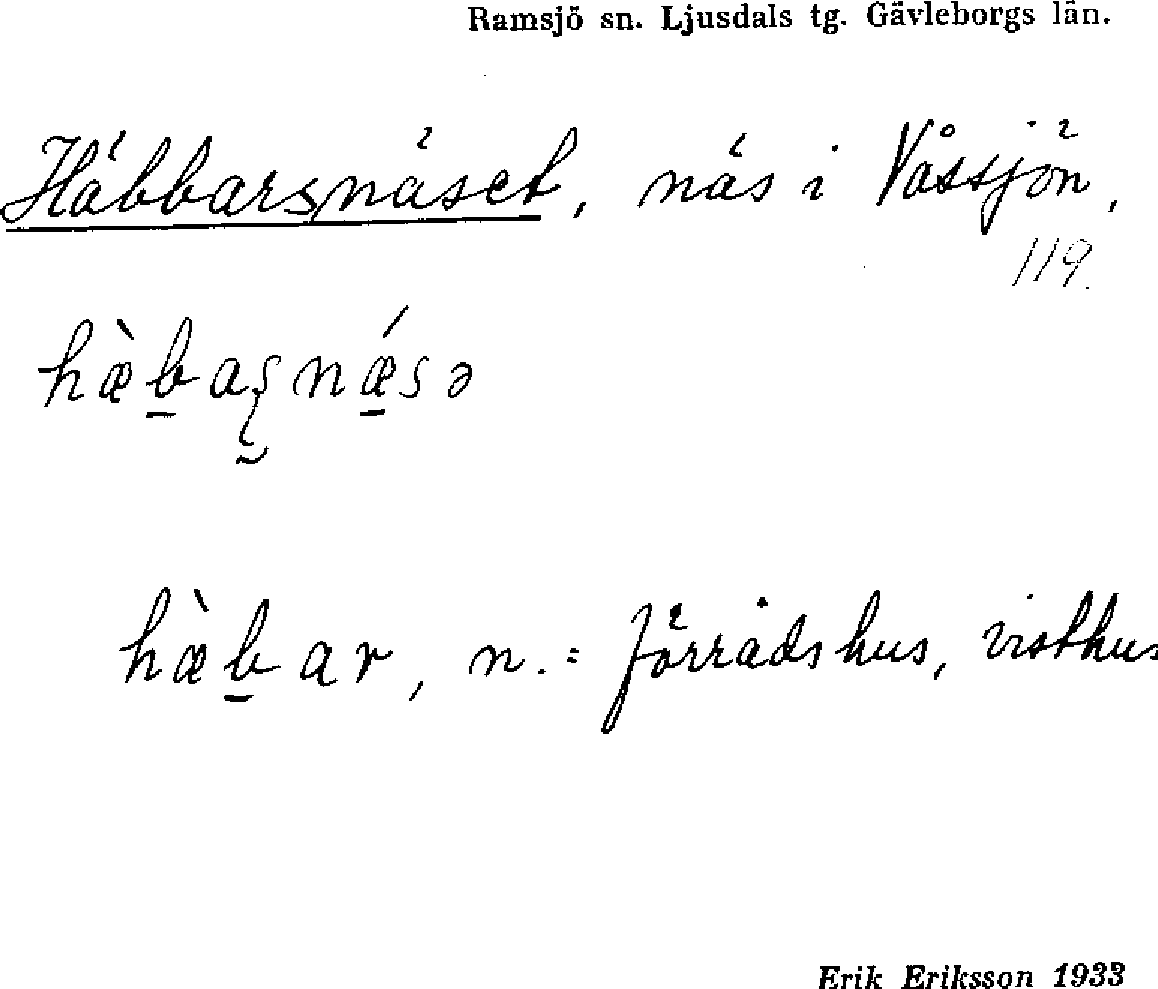 Ramsjö sn. Ljusdals tg. Gävleborgs län.
Häbbarsnäset, näs i Våssjön,
119.
hæ̀b̲aʂnǽ̲sə
hæ̀b̲ar, n. = förrådshus, visthus
Erik Eriksson 1933